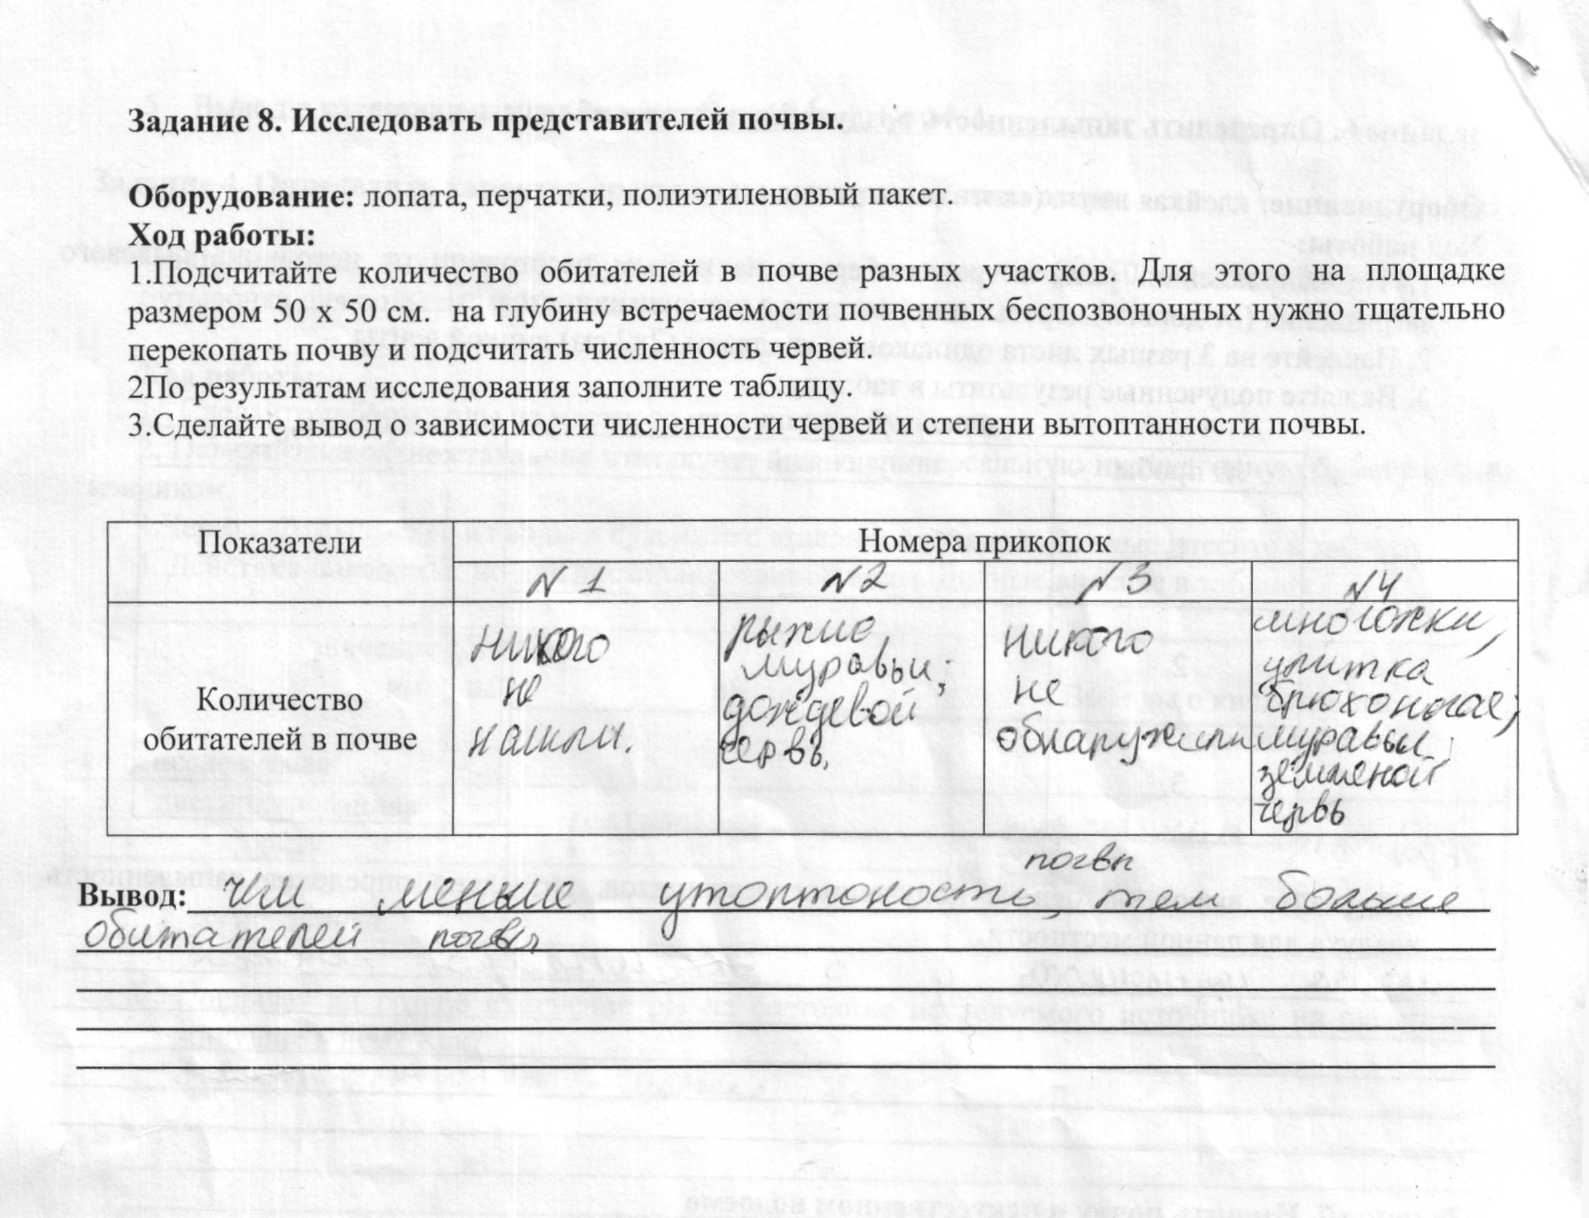 Задание 8. Исследовать представителей почвы.
Оборудование: лопата, перчатки, полиэтиленовый пакет.
Ход работы:
1.Подсчитайте количество обитателей в почве разных участков. Для этого на площадке
размером 50 х 50 см. на глубину встречаемости почвенных беспозвоночных нужно тщательно
перекопать почву и подсчитать численность червей.
2По результатам исследования заполните таблицу.
3.Сделайте вывод о зависимости численности червей и степени вытоптанности почвы.
Показатели
Номера прикопок
№1
№2
№3
№4
Количество
обитателей в почве
никого
не
нашли.
рыжие
муравьи;
дождевой
червь.
никого
не
обнаружили
многожки,
улитка
брюхоногая;
муравьи;
земляной
червь
почвы
Вывод: чем меньше утоптоность, тем больше
обитателей почвы